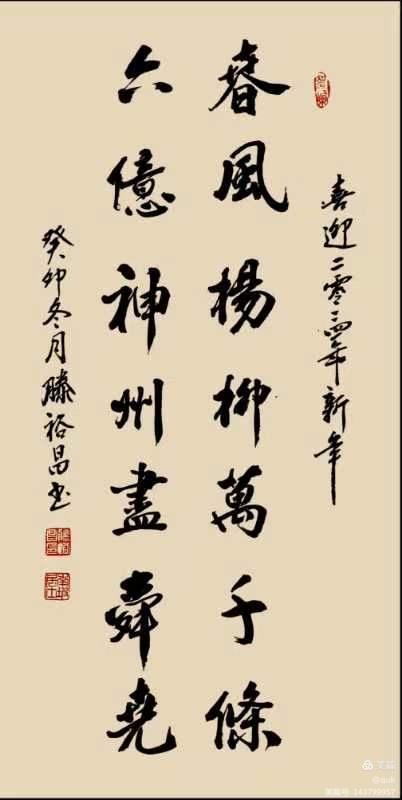 喜迎二零二四年新年
春風楊柳萬千條
六億神州盡舜堯
癸卯冬月滕裕昌书